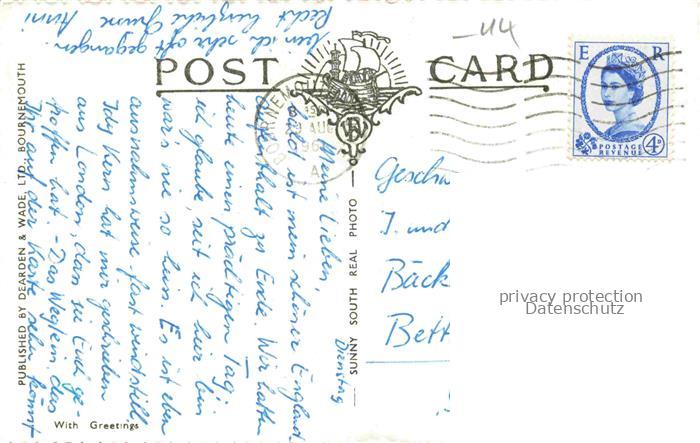 POST CARD
— 44
BOURNEM
AUG
196
A
E R
POSTAGE
REVENUE
4D
PUBLISHED BY DEARDEN & WADE, LTD., BOURNEMOUTH
SUNNY SOUTH REAL PHOTO
With Greetings
Dienstag
Meine Lieben,
bald ist mein schöner England-
aufenthalt zu Ende. Wir hatten
heute einen prächtigen Tag;
ich glaube, seit ich hier bin
war's nie so heiss. Es ist eben
ausnahmsweise fast windstill
Idy Kern hat mir geschrieben
aus London, dass sie Euch ge-
troffen hat. - Das Weglein, das
Ihr auf der Karte sehn könnt
bin ich sehr oft gegangen
Recht herzliche Grüsse Anni
Geschw
J. und
Bäck
Bett
privacy protection
Datenschutz